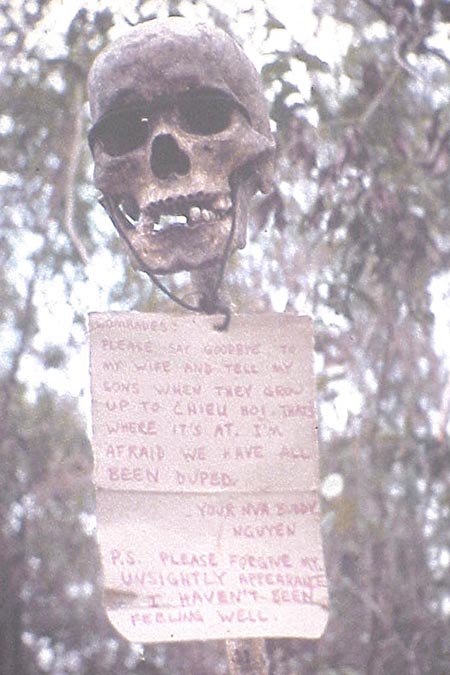 COMRADES:
PLEASE SAY GOODBYE TO
MY WIFE AND TELL MY
SONS WHEN THEY GROW
UP TO CHIEU HOI. THATS
WHERE IT'S AT. I'M
AFRAID WE HAVE ALL
BEEN DUPED.
- YOUR NVA BUDDY
NGUYEN
P.S. PLEASE FORGIVE MY
UNSIGHTLY APPEARANCE
I HAVEN'T BEEN
FEELING WELL.